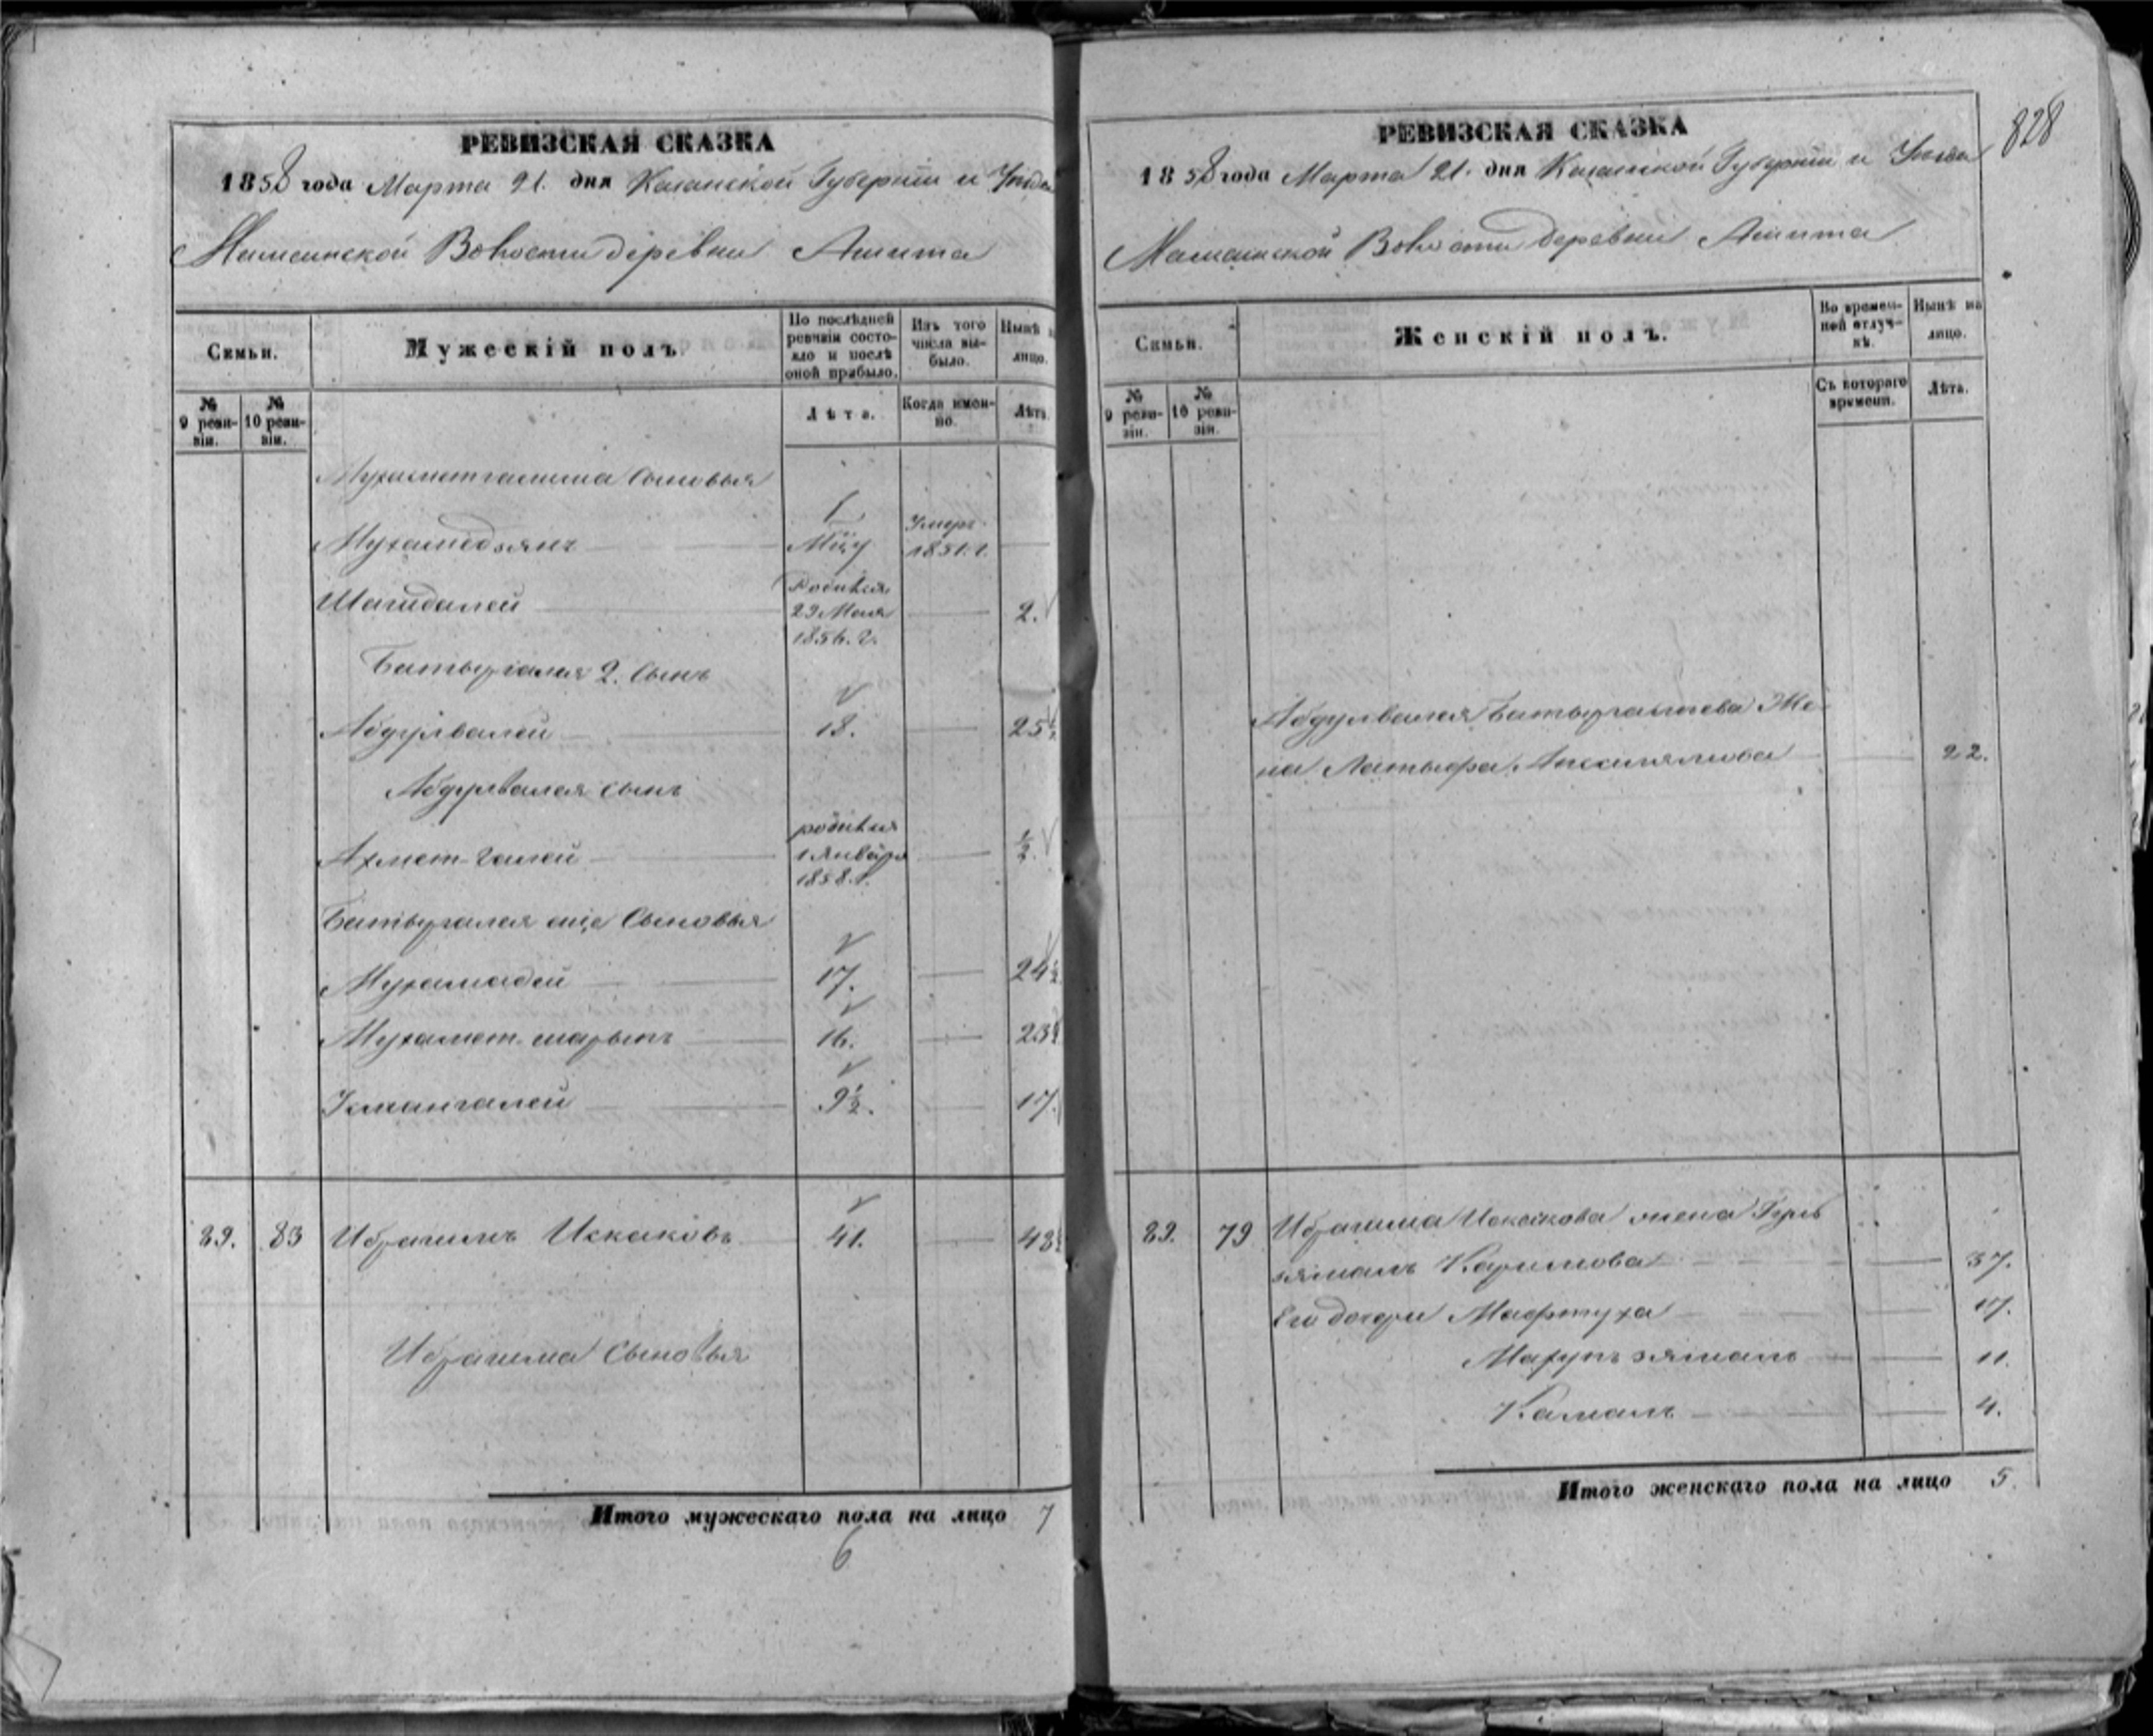 РЕВИЗСКАЯ СКАЗКА
1858 года Марта 21. дня Казанской Губернiи и Уѣзда
Волости деревни Ашита
Семьи.
Мужескiй полъ.
По послѣдней ревизiи состояло и послѣ оной прибыло.
Изъ того числа выбыло.
Нынѣ на лицо.
№ 9 ревизiи.
№ 10 ревизiи.
Лѣта.
Когда именно.
Лѣта.
Мухаметгалима Сыновья
Мухамедзянъ Умеръ 1851. г.
Шагидалей Родился 29 Маiя 1856. г. 2.
Батыргалея 2. Сынъ
Абдулвалей 18. 25½
Абдулвалея сынъ
Ахмет-галей родился 1 Января 1858. г. ½.
Батыргалея еще Сыновья
Мухамадей 17. 24½
Мухамет-шарыпъ 16. 23½
Имангалей 9½. 17.
89. 83 Ибрагимъ Искаковъ 41. 48½
Ибрагима Сыновья
Итого мужескаго пола на лицо 7
6
828
РЕВИЗСКАЯ СКАЗКА
1858 года Марта 21. дня Казанской Губернiи и Уѣзда
Волости деревни Ашита
Семьи.
Женскiй полъ.
Во временной отлучкѣ.
Нынѣ на лицо.
№ 9 ревизiи.
№ 10 ревизiи.
Съ котораго времени.
Лѣта.
Абдулвалея Батыргалеева Же-
на Латыфа 22.
89. 79 Ибрагима Искакова жена Гуль
зямалъ Каримова 37.
Его дочери Мафтуха 17.
Магупъ зямалъ 11.
Камалъ 4.
Итого женскаго пола на лицо 5.